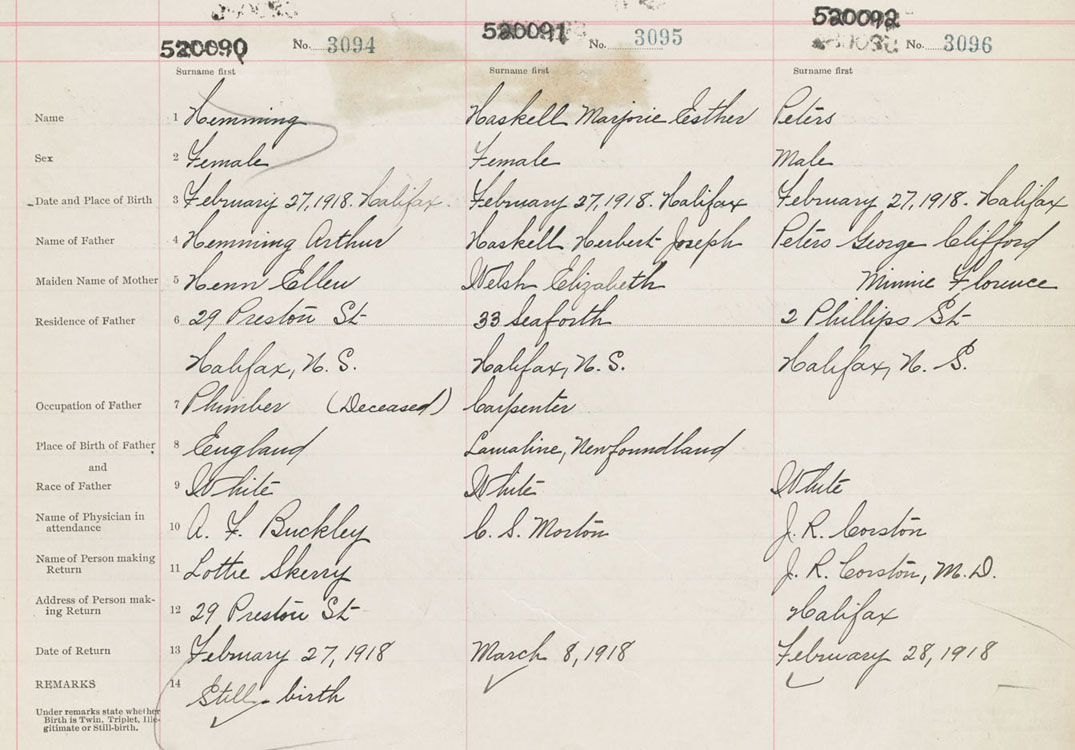 520090 No. 3094 520091 No. 3095 520092 No. 3096
Surname first Surname first Surname first
Name 1 Hemming Haskell Marjorie Esther Peters
Sex 2 Female Female Male
Date and Place of Birth 3 February 27, 1918. Halifax. February 27, 1918. Halifax February 27, 1918. Halifax
Name of Father 4 Hemming Arthur Haskell Herbert Joseph Peters George Clifford
Maiden Name of Mother 5 Henn Ellen Welsh Elizabeth Minnie Florence
Residence of Father 6 29 Preston St 33 Seaforth 2 Phillips St
Halifax, N. S. Halifax, N. S. Halifax, N. S.
Occupation of Father 7 Plumber (Deceased) Carpenter
Place of Birth of Father 8 England Lamaline, Newfoundland
and
Race of Father 9 White White White
Name of Physician in
attendance 10 A. F. Buckley C. S. Morton J. R. Corston
Name of Person making
Return 11 Lottie Skerry J. R. Corston, M. D.
Address of Person mak-
ing Return 12 29 Preston St Halifax
Date of Return 13 February 27, 1918 March 8, 1918 February 28, 1918
REMARKS 14 Still-birth
Under remarks state whether
Birth is Twin, Triplet, Ille-
gitimate or Still-birth.